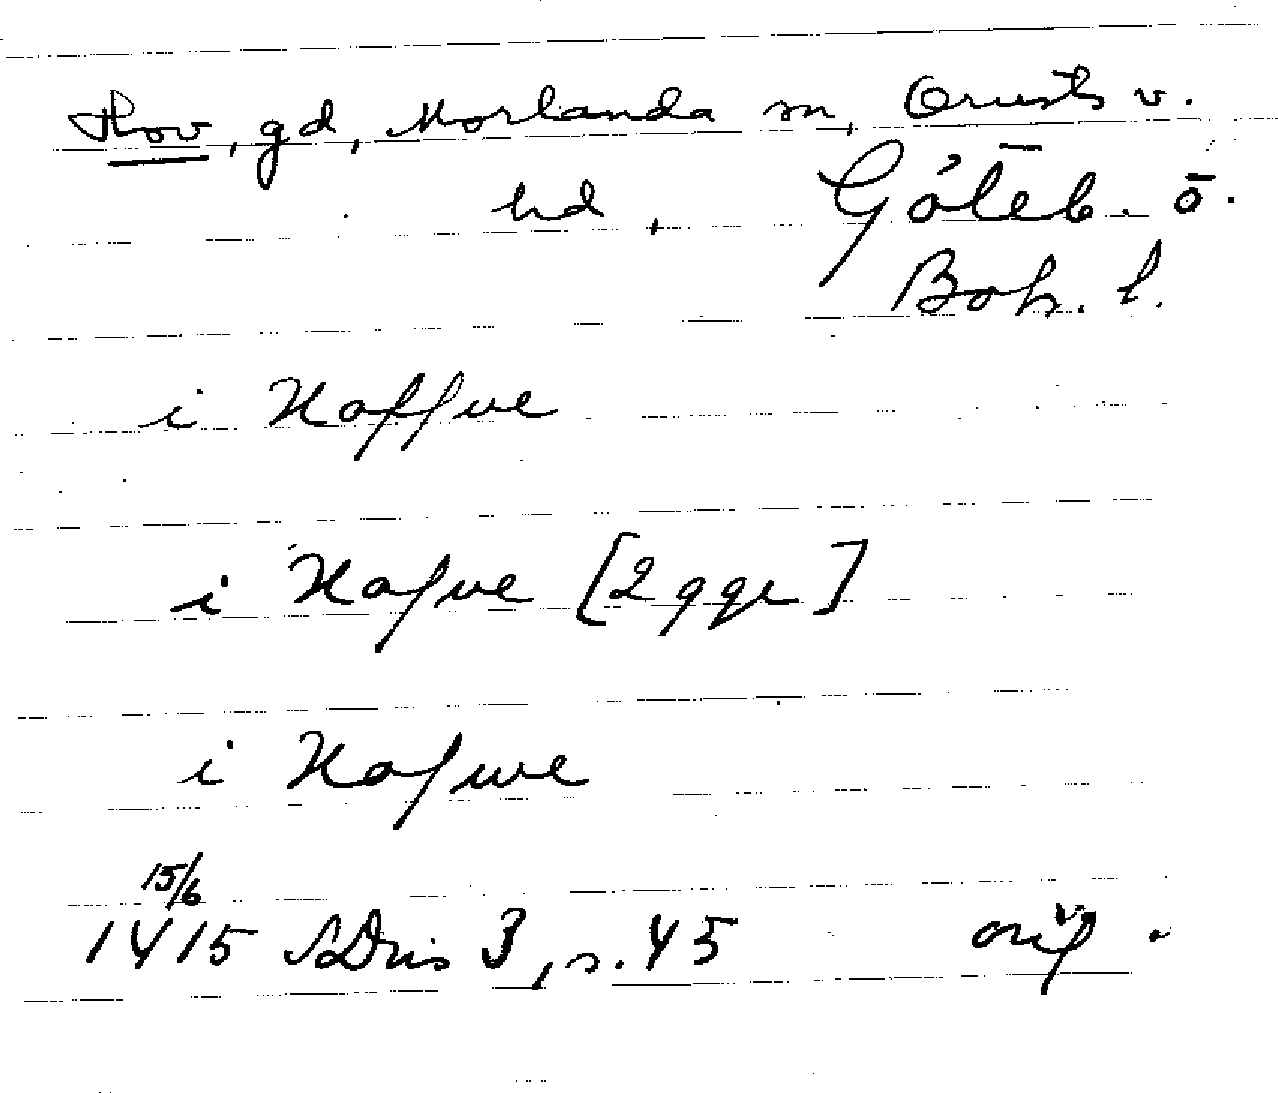 Hov, gd, Morlanda sn, Orusts v.
hd, Göteb. o.
Boh. l.
i Hoffue
i Hofue [2 ggr]
i Hofwe
15/6
1415 SDns 3, s. 45 orig.